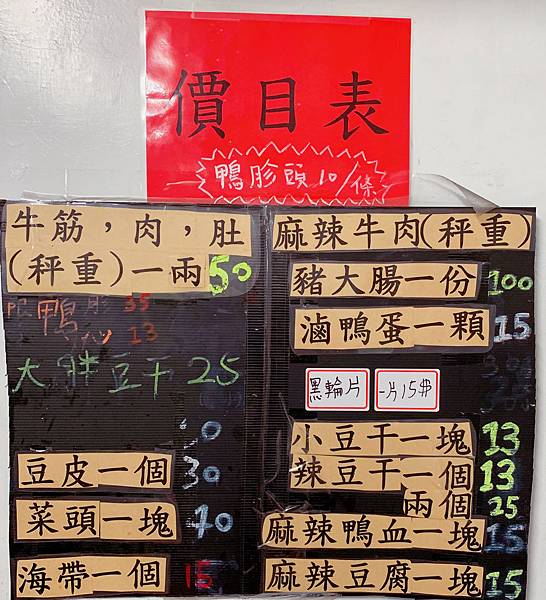 價目表
鴨胗頭10/條
牛筋,肉,肚
(秤重)一兩50
鴨 35
13
大胖豆干25
豆皮一個 30
菜頭一塊 40
海帶一個 15
麻辣牛肉(秤重)
豬大腸一份 100
滷鴨蛋一顆 15
黑輪片 一片15元
小豆干一塊 13
辣豆干一個 13
兩個 25
麻辣鴨血一塊 15
麻辣豆腐一塊 15